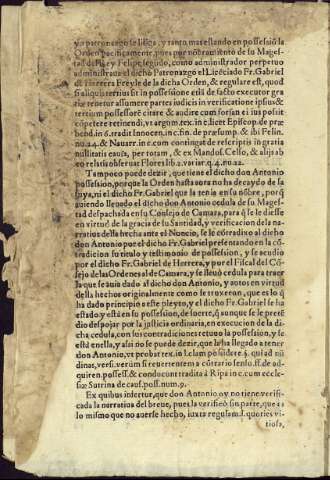 yo patronazgo se litiga, y tanto mas estando en possessiõ la
Orden pacificamente, pues por nõbramiento de su Mages-
tad del Rey Felipe segũdo, como administrador perpetuo
administraua el dicho Patronazgo el Licẽciado Fr. Gabriel
de Herrera Freyle de la dicha Orden, & regulare est, quod
si aliquis tertius sit in possessione etiã de facto executor gra
tiæ tenetur assumere partes iudicis in verificatione ipsius &
tertium possessorẽ citare & audire cum forsan ei ius possit
cõpetere retinendi, vt argum. tex. in c. licet Episcop. de præ
bend. in 6. tradit Innocen. in c. fin. de præsump. & ibi Felin.
no. 24. & Nauarr. in c. cum contingat de rescriptis in gratia
nullitatis causa, per totam, & ex Mandos. Cello, & alijs ab
eo relatis obseruat Flores lib. 2. variar. q. 4. no. 22.
Tampoco puede dezir, que tiene el dicho don Antonio
possession, porque la Orden hasta aora no ha decaydo de la
suya, ni el dicho Fr. Gabriel que la tenia en su nõbre, por q̃
auiendo lleuado el dicho don Antonio cedula de su Magestad
despachada en su Consejo de Camara, para q̃ se le diesse
en virtud de la gracia de su Santidad, y verificacion de la na-
rratiua della hecha ante el Nuncio, se le cõtradixo al dicho
don Antonio por el dicho Fr. Gabriel presentando en la cõ
tradicion su titulo y testimonio de possession, y se acudio
por el dicho Fr. Gabriel de Herrera, y por el Fiscal del Cõ-
sejo de las Ordenes al de Camara, y se lleuò cedula para traer
la que se auia dado al dicho don Antonio, y autos en virtud
della hechos originalmente como se truxeron, que es lo q̃
ha dado principio a este pleyto, y el dicho Fr. Gabriel se ha
estado y està en su possession, de suerte, q̃ aunque se le prendiò
despojar por la justicia ordinaria, en execucion de la di-
cha cedula, con sus contradiciones retuuo la possession, y se
està en ella, y assi no se puede dezir, que la ha llegado a tener
don Antonio, vt probat tex. in l. clam possidere §. qui ad nũ
dinas, versi. verũm si reuertentem a cõtrario sensu. ff. de ad-
quiren. possess. & conducunt tradita à Ripa in c. cum eccle-
siæ Sutrina de caus. poss. num. 9.
Ex quibus infertur, que don Antonio oy no tiene verifi-
cada la narratiua del breue, pues la verificò sin parte, que es
lo mismo que no auerse hecho, iuxta regulam l. quories vi-
tiosa,